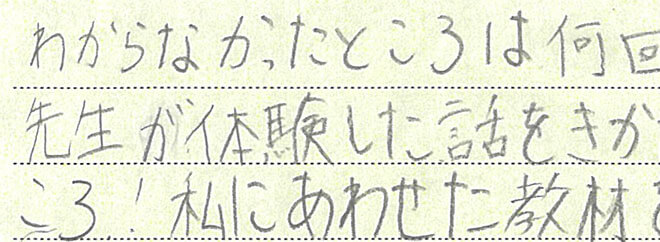 わからなかったところは何回
先生が体験した話をきか
ころ！私にあわせた教材を